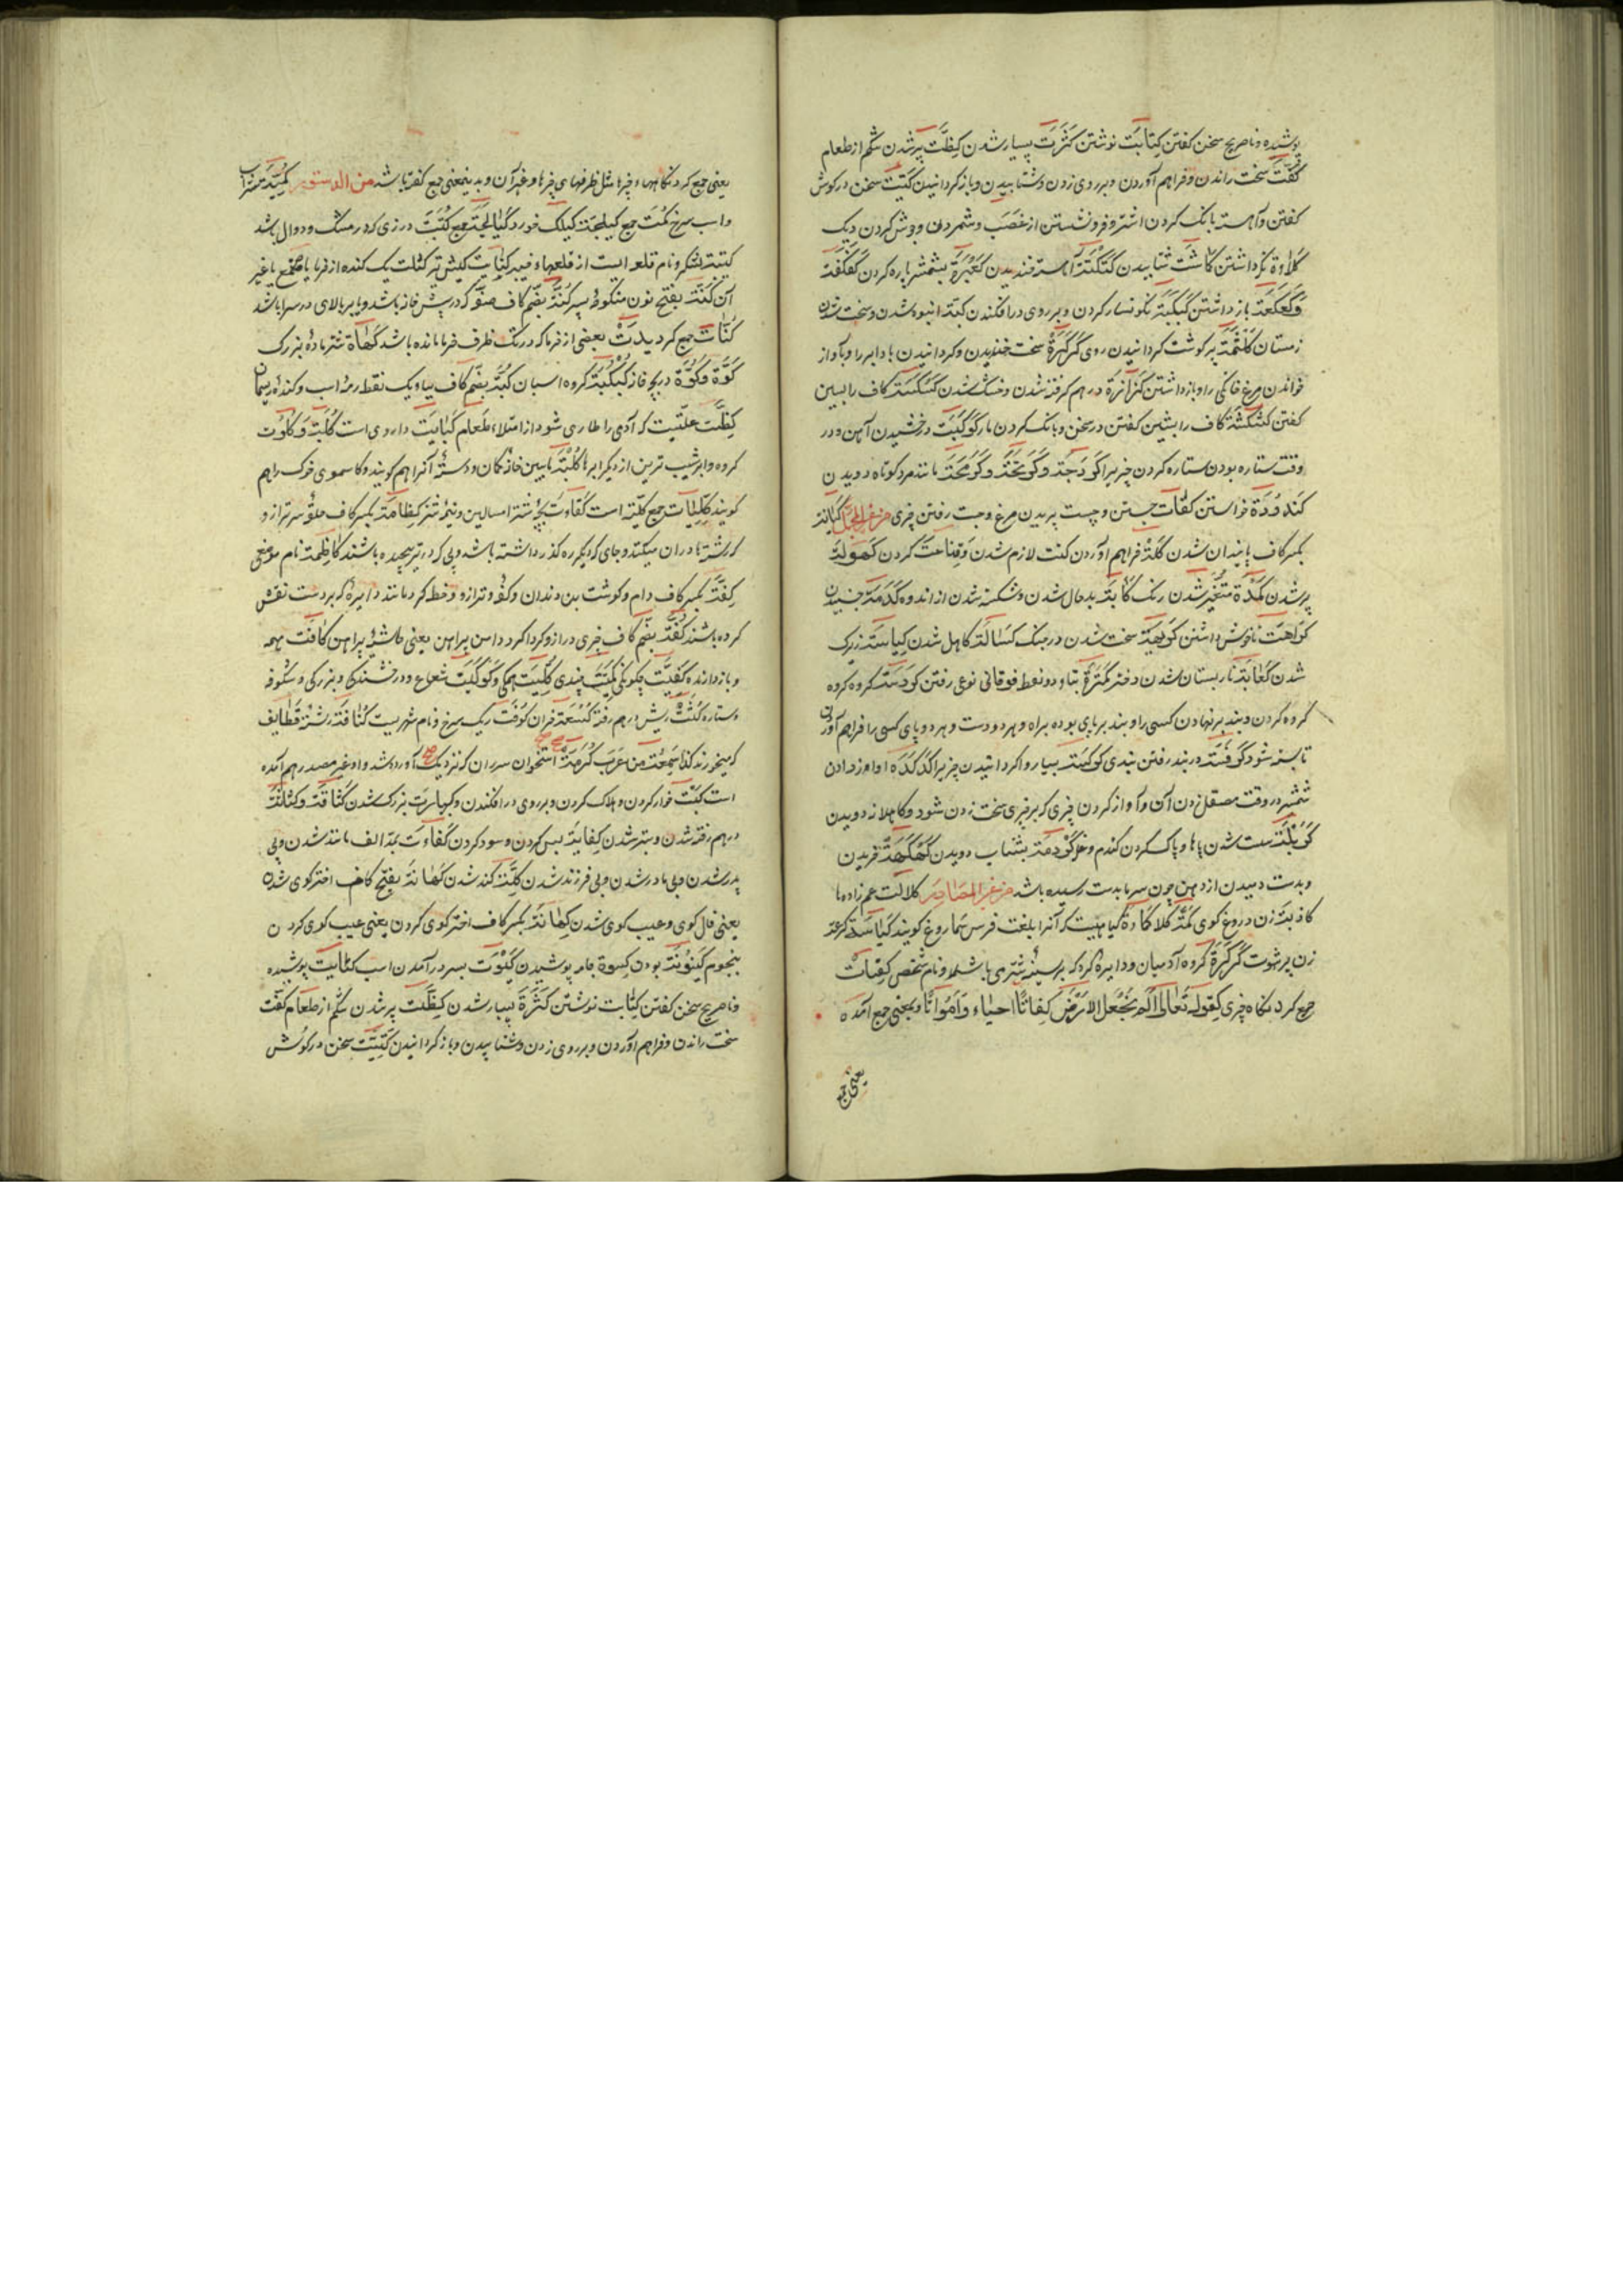 پوشیده و ناصریح سخن کفتن کِتابَت نوشتن کَثرَت بسیار شدن کِظَّت پر شدن شکم از طعام
کَفت سخت راندن و فراهم آوردن و بر روی زدن و شتابیدن و باز کردانیدن کَتیت سخن در کوش
کفتن و آهسته بانک کردن اشتر و فرو نشستن از غضب و شمردن و جوش کردن دیک
شتابیدن کَتکَتَة آهسته خندیدن کَعبَرَة بشمشیر پاره کردن
وکَعکَعَة باز داشتن کَبکَبَة نکونسار کردن و بر روی در افکندن کبته انبوه شدن و سخت شدن
زمستان کَلثَمَة پر کوشت کردانیدن روی کَرکَرَة سخت خندیدن و کردانیدن باد ابر را و بآواز
خواندن مرغ خانکی را و باز داشتن کَزازَة در هم کرفته شدن و خشک شدن کَسکَسَة کاف را بسین
کفتن کَشکَشَة کاف را بشین کفتن در سخن و بانک کردن مار کَوکَبَت درخشیدن آهن و در
وقت ستاره بودن ستاره کردن چیز برا مانند مرد کوتاه دویدن
خواستن کفات جستن و چست پریدن مرغ و جست رفتن چیزی
بکسر کاف پایندان شدن کَلتَة فراهم آوردن کنت لازم شدن و قناعت کردن کهولة
پر شدن کُمدَة متغیر شدن رنک کابَة بدحال شدن و شکسته شدن از اندوه کَدَمَة جنبیدن
کَراهَت ناخوش داشتن سخت شدن در جنک کَسالَة کاهل شدن کِیاسَة زیرک
شدن کَعابَة نار بستان شدن دختر کَمتَرَة بتاء دو نقطه فوقانی نوعی رفتن کَردَسَة کروه کروه
کروه کردن و بند بر نهادن کسی را و بند بر پای بوده براه و هر دو دست و هر دو پای کسی را فراهم آوردن
تا بسته شود در بند رفتن بسیار واکردانیدن چیز برا کَدکَدَه آواز دادن
شمشیر در وقت صیقل زدن آن و آواز کردن چیزی که بر چیزی سخت زدن شود و کاهلانه دویدن
کَربَلَة سست شدن پاها و پاک کردن کندم و کَردَمَة بشتاب دویدن کَهکَهَة غریدن
و بدست دمیدن از دهن چون سرما بدست رسیده باشد من غیر المصادر کلالت عم زاده ها
کاذبَة زن دروغ کوی کَمَّة کلاه کیاهیست که آنرا بلغت فرس سماروغ کویند
زن پر شهوت کَرکَرَة کروه آدمیان و دایره کرد که بر سینه شتری باشد و نام شخص کِفات
جمع کرد نکاه چیزی کقوله تعالی الم نجعل الارض کفاتا احیاء و امواتا و بمعنی جمع آمده
یعنی جمع
یعنی جمع کرد نکاهها، چیزها مثل ظرفهای چیزها و غیر آن و بدینمعنی جمع کفتها باشد من الدستور
و اسب سرخ کُمت جمع کیلجَة کیلک خورد کیالجَة جمع کُتبَت درزی که در مشک و دوال باشد
کتیبة لشکر و نام قلعه ایست از قلعهاء خیبر یک کنده از خرما یا غیر
آن کَنَّة بفتح نون منکوحه پسر کُنَّة بضم کاف صفه که در پیش خانه باشد و یا بر بالای در سرا باشد
کُنّات جمع بعضی از خرما که در تک ظرف خرما مانده باشد کَهاة شتر ماده بزرک
کَوَّة و کُوَّة دریچه خانه کُبکُبَة کروه اسبان کُبَّة بضم کاف بباء یک نقطه رمه اسب و کنده ریسمان
کِظَّت علتیست که آدمی را طاری شود از امتلاء طعام کَبابَت داروی است کُلبَة و کَلوُت
کروه و ابر شیب ترین از دیکر ابرها کُلبَة مابین خانه کمان و دسته آنرا هم کویند و کاسموی خوک را هم
کویند کلیات جمع کلیة است کَفاوت بچه شتر امسالین و نیزه شتر کِظامَة بکسر کاف حلقه سر ترازو
که رشتها در آن میکند و جای که آبکیر ره کذر داشته باشد و پی که در تیر پیچیده باشند کاظِمَة نام موضعی
کِفَّة بکسر کاف دام و کوشت بن دندان و کفه ترازو و خط کرد مانند دایره که بر دست نقش
کرده باشند کُفَّة بضم کاف چیزی دراز و کرداکرد دامن پیراهن یعنی حاشیه پیراهن کافَّت همه
و باز دارنده کَیفیَّت چکونکی کمیّت چندی کُلیّت همکی و کَوکَبَت شعاع و درخشندکی و بزرکی و شکوفه
و ستاره کَثَّت ریش در هم رفته کُسعَة خران کوفَت ریک سرخ و نام شهریست کُنافَة رشته قطایف
که میخورند کذا سَمِعتُ من عرب استخوان سرران که نزدیک آورده شد و او غیر مصدر هم آمده
است کَبت خوار کردن و هلاک کردن و بر روی در افکندن و کبارت بزرک شدن کَثافَة و کَثاثَة
در هم رفته شدن و ستبر شدن کِفایَة بس کردن و سود کردن کَفاءَت بمد الف مانند شدن و بی
پدر شدن و بی مادر شدن و بی فرزند شدن کَلَّة کند شدن کَهانَة بفتح کاف اخترکوی شدن
یعنی فال کوی و غیب کوی شدن کِهانَة بکسر کاف اخترکوی کردن یعنی غیب کوی کردن
بنجوم کَینونَة بودن کسوة جامه پوشیدن کَبوَت بسر در آمدن اسب کنایت پوشیده
و ناصریح سخن کفتن کِتابت نوشتن کَثرَة بسیار شدن کِظَّت پر شدن شکم از طعام کَفت
سخت راندن و فراهم آوردن و بر روی زدن و شتابیدن و باز کردانیدن کَتیت سخن در کوش